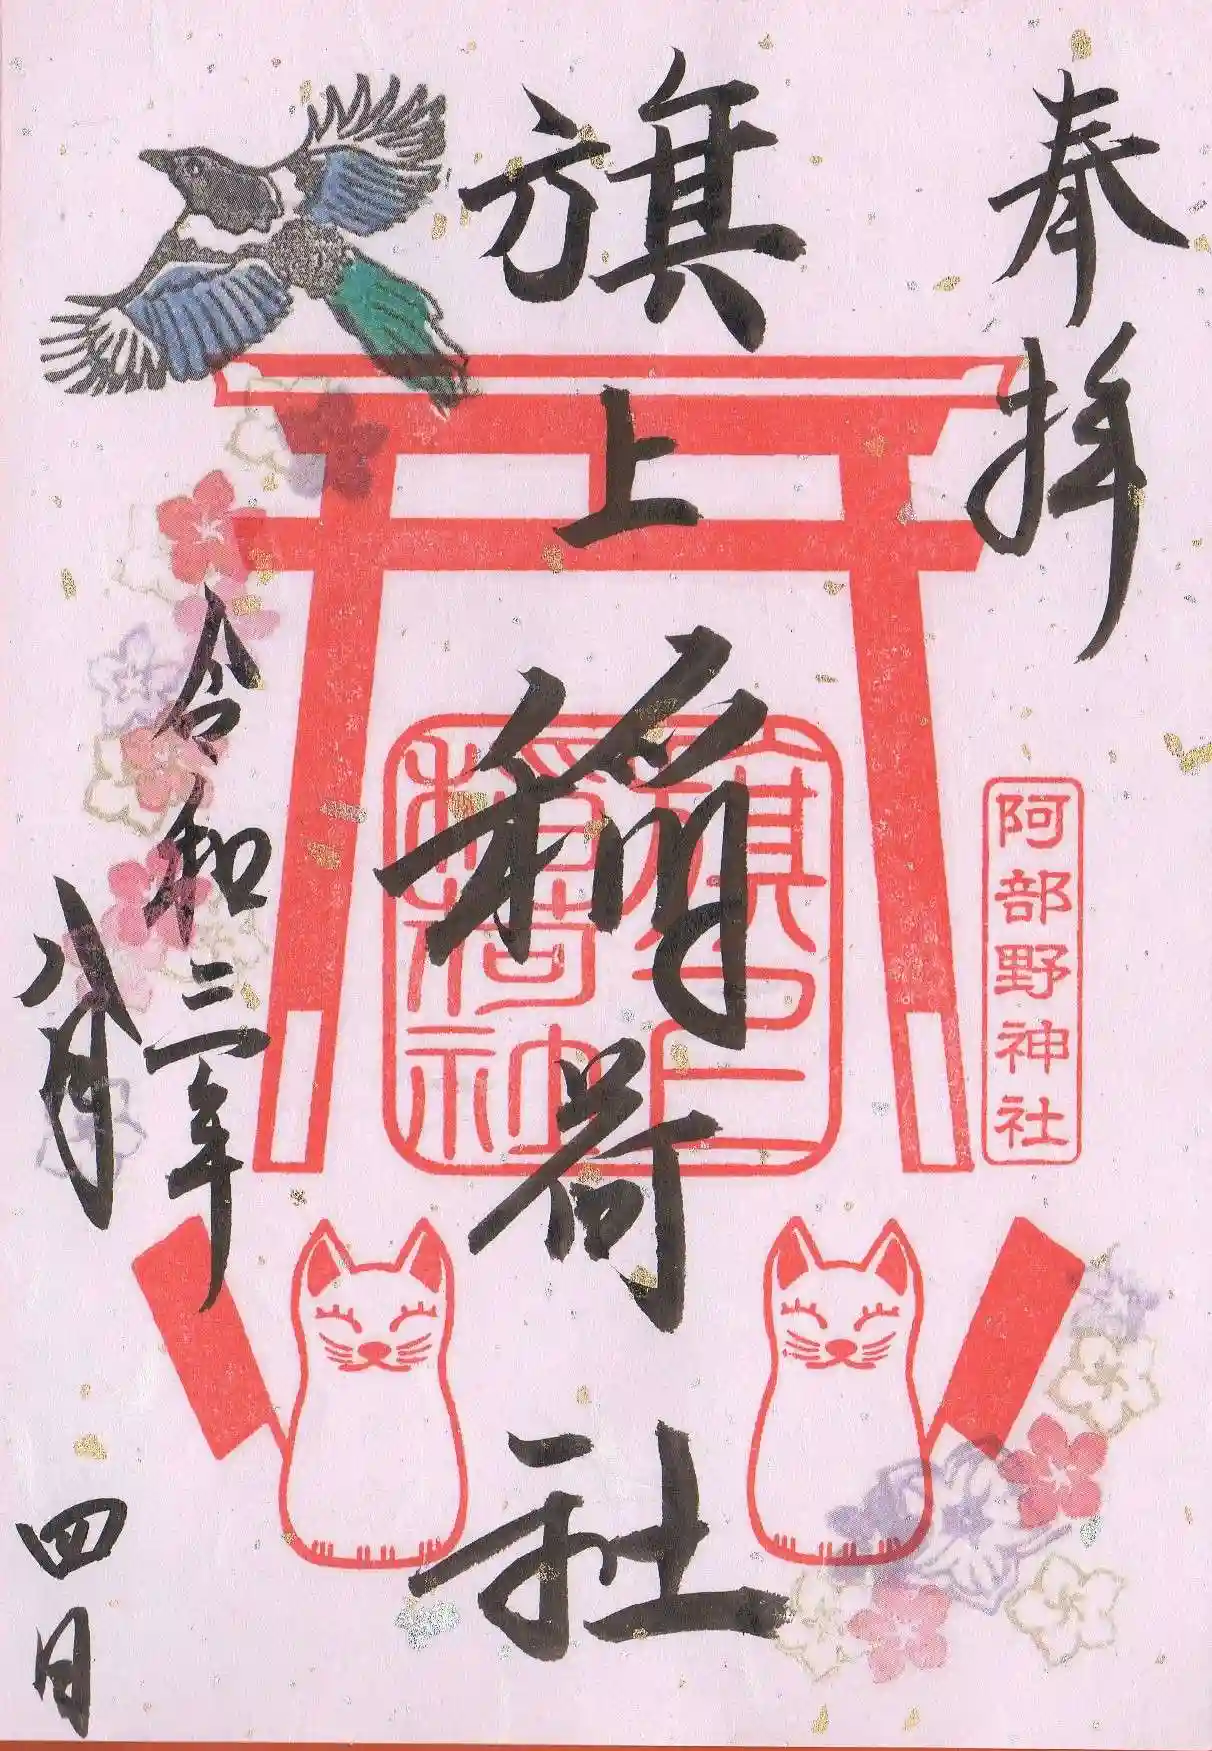 奉拝
旗上稲荷社
旗上稲荷社
阿部野神社
令和三年
八月四日